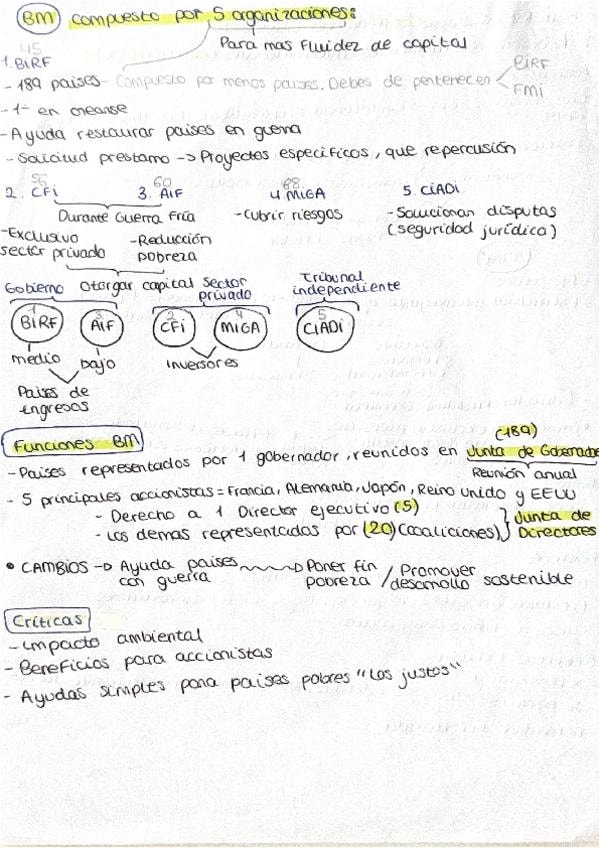 BM compuesto por 5 organizaciones:
Para mas Fluidez de capital
45
1. BIRF
- 189 paises - Compuesto por menos paises. Debes de pentenecen BIRF
FMi
- 1º en crearse
- Ayuda restaurar paises en guerra
- Solicitud prestamo -> Proyectos especificos, que repercusión
56 60 88
2. CFi 3. AiF 4. MiGA 5. CiADi
Durante Guerra Fría - Cubrir riesgos - Solucionan disputas
(seguridad jurídica)
- Exclusivo sector privado - Reducción pobreza
Gobierno Otorgar capital Sector privado Tribunal independiente
1 3 2 4 5
BiRF AiF CFi MiGA CiADi
medio bajo inversores
Paises de ingresos
Funciones BM
(189)
- Paises representados por 1 gobernador, reunidos en Junta de Gobernadores
Reunión anual
- 5 principales accionistas = Francia, Alemania, Japón, Reino Unido y EEUU
- Derecho a 1 Director ejecutivo (5)
- Los demas representados por (20) (coaliciones) Junta de Directores
• CAMBIOS -> Ayuda paises con guerra -> Poner fin pobreza / Promover desarrollo sostenible
Críticas
- Impacto ambiental
- Beneficios para accionistas
- Ayudas simples para paises pobres "Los justos"